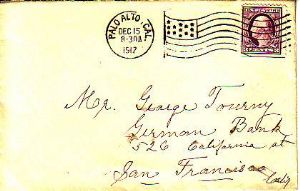 PALO ALTO, CAL.
DEC 15
8-30A
1917
Mr. George Tourny
German Bank
526 California st
San Francisco
Calif